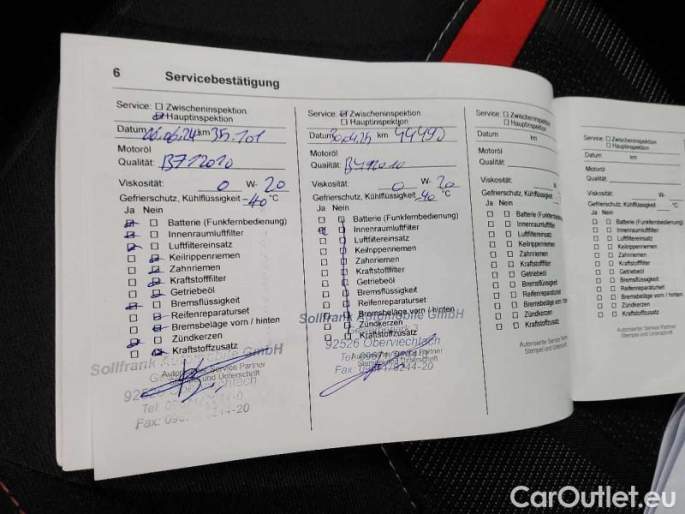 6 Servicebestätigung
Service: Zwischeninspektion
Hauptinspektion
Datum 26.06.24 km 35.101
Motoröl
Qualität: B712010
Viskosität: 0 W- 20
Gefrierschutz, Kühlflüssigkeit -40 °C
Ja Nein
Batterie (Funkfernbedienung)
Innenraumluftfilter
Luftfiltereinsatz
Keilrippenriemen
Zahnriemen
Kraftstofffilter
Getriebeöl
Bremsflüssigkeit
Reifenreparaturset
Bremsbeläge vorn / hinten
Zündkerzen
Kraftstoffzusatz
Sollfrank Automobile GmbH
Autorisierter Service Partner
Stempel und Unterschrift
Service: Zwischeninspektion
Hauptinspektion
Datum 30.04.25 km 44490
Motoröl
Qualität: B712010
Viskosität: 0 W- 20
Gefrierschutz, Kühlflüssigkeit -40 °C
Ja Nein
Batterie (Funkfernbedienung)
Innenraumluftfilter
Luftfiltereinsatz
Keilrippenriemen
Zahnriemen
Kraftstofffilter
Getriebeöl
Bremsflüssigkeit
Reifenreparaturset
Bremsbeläge vorn / hinten
Zündkerzen
Kraftstoffzusatz
Sollfrank Automobile GmbH
92526 Oberviechtach
Autorisierter Service Partner
Stempel und Unterschrift
Service: Zwischeninspektion
Hauptinspektion
Datum km
Motoröl
Qualität:
Viskosität: W-
Gefrierschutz, Kühlflüssigkeit °C
Ja Nein
Batterie (Funkfernbedienung)
Innenraumluftfilter
Luftfiltereinsatz
Keilrippenriemen
Zahnriemen
Kraftstofffilter
Getriebeöl
Bremsflüssigkeit
Reifenreparaturset
Bremsbeläge vorn / hinten
Zündkerzen
Kraftstoffzusatz
Autorisierter Service Partner
Stempel und Unterschrift
CarOutlet.eu